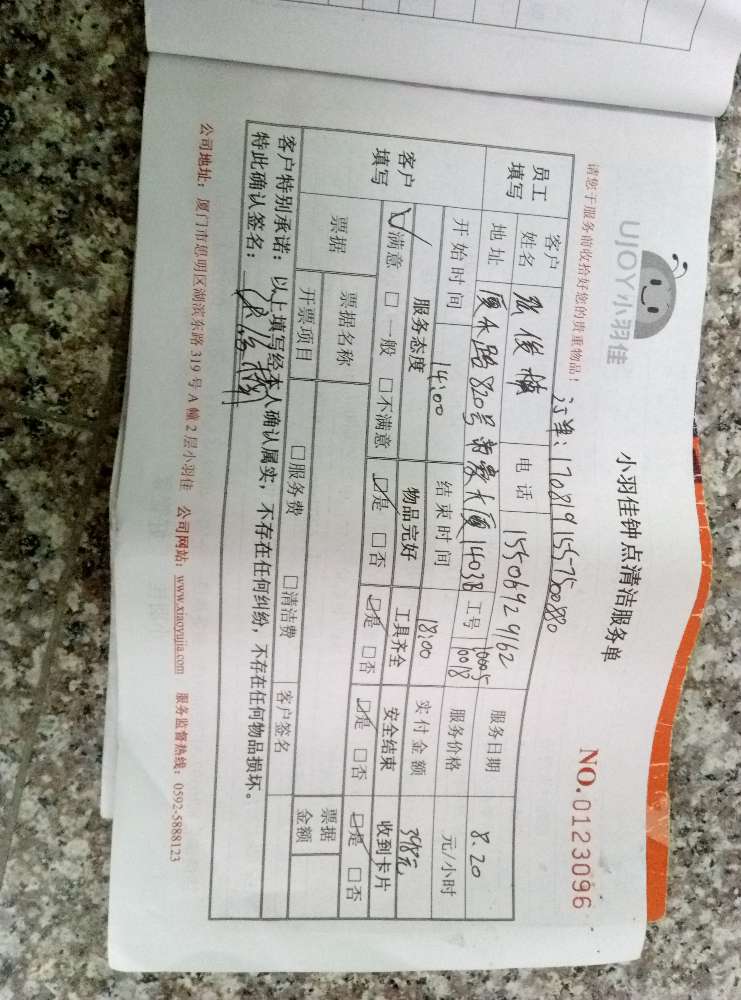 UJOY小羽佳
小羽佳钟点清洁服务单
请您于服务前收拾好您的贵重物品！
NO.0123096
订单：170819155750880
员工填写 客户姓名 张俊 电话 15506929162 服务日期 8.20
地址 厦禾路820号帝豪大厦1403B 工号 10005 10018 服务价格 元/小时
开始时间 14:00 结束时间 18:00 实付金额 398元
客户填写 服务态度 物品完好 工具齐全 安全结束 收到卡片
☑满意 □一般 □不满意 ☑是 □否 ☑是 □否 ☑是 □否 ☑是 □否
票据 票据名称 客户签名 票据金额
开票项目 □服务费 □清洁费
客户特别承诺：以上填写经本人确认属实，不存在任何纠纷，不存在任何物品损坏。
特此确认签名：
公司地址：厦门市思明区湖滨东路319号A幢2层小羽佳 公司网站：www.xiaoyujia.com 服务监督热线：0592-5888123